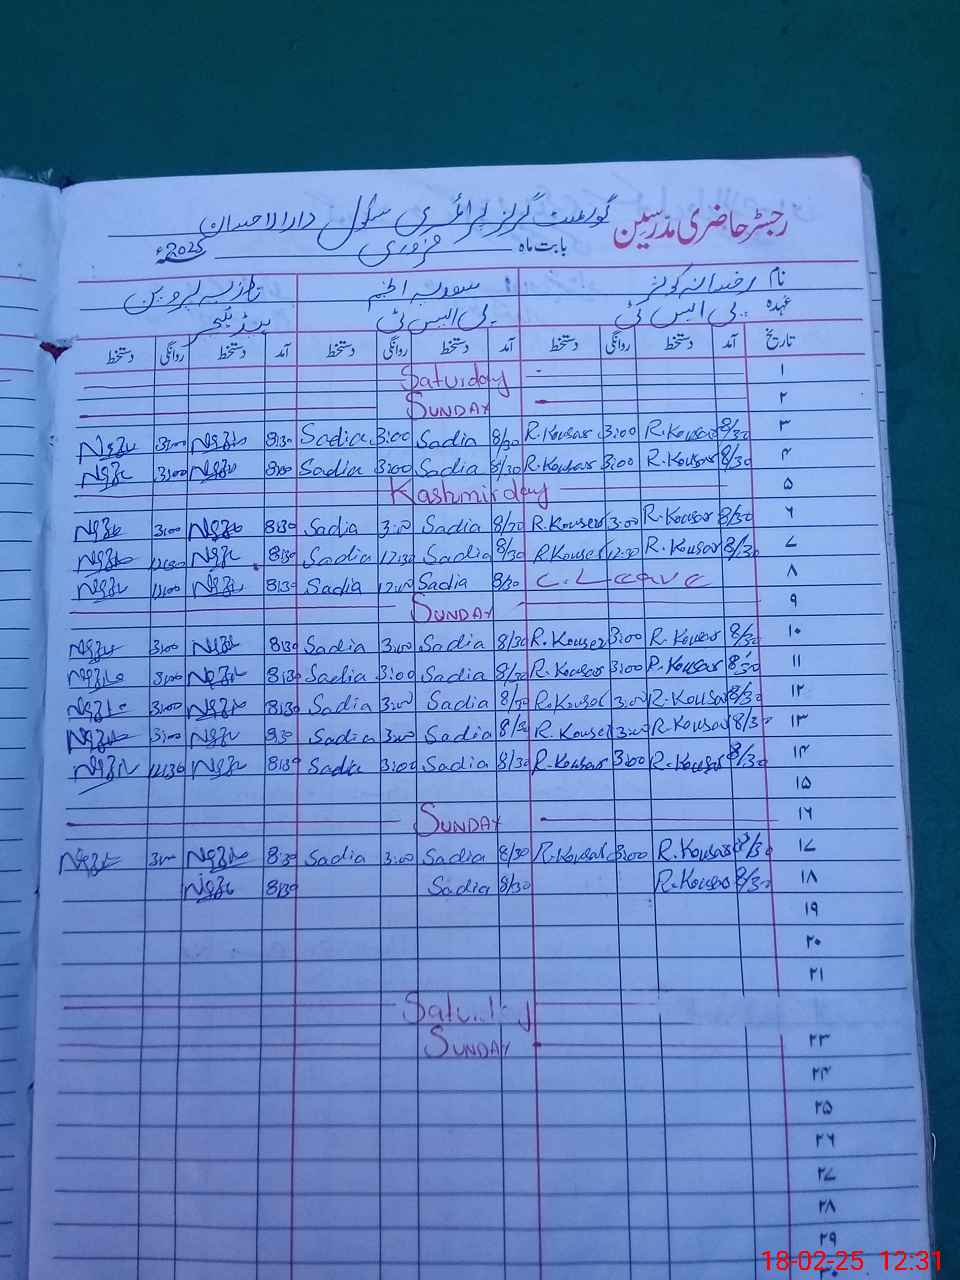 رجسٹر حاضری مدرسین گورنمنٹ گرلز پرائمری سکول دارالاحسان
بابت ماہ فروری 2025ء
نام رخسانہ کوثر سعدیہ انجم نازیہ پروین
عہدہ پی ایس ٹی پی ایس ٹی
تاریخ آمد دستخط روانگی دستخط آمد دستخط روانگی دستخط آمد دستخط روانگی دستخط
۱ Saturday
۲ SUNDAY
۳ 8/30 R.Kousar 3:00 R.Kousar 8/30 Sadia 3:00 Sadia 8:30 3:00
۴ 8/30 R.Kousar 3:00 R.Kousar 8/30 Sadia 3:00 Sadia 3:00
۵ Kashmir day
۶ 8/30 R.Kousar 3:00 R.Kouser 8/30 Sadia 3:00 Sadia 8:30 3:00
۷ 8/30 R.Kousar 12:30 R.Kouser 8/30 Sadia 12:30 Sadia 8:30
۸ C.Leave 8/30 Sadia Sadia 8:30
۹ SUNDAY
۱۰ 8/30 R.Kousar 3:00 R.Kouser 8/30 Sadia 3:00 Sadia 8:30 3:00
۱۱ 8/30 R.Kousar 3:00 R.Kousar 8/30 Sadia 3:00 Sadia 8:30 3:00
۱۲ 8/30 R.Kousar 3:00 R.Kousar 8/30 Sadia 3:00 Sadia 8:30 3:00
۱۳ 8/30 R.Kousar 3:00 R.Kouser 8/30 Sadia 3:00 Sadia 3:00
۱۴ 8/30 R.Kousar 3:00 R.Kousar 8/30 Sadia 3:00 Sadia 8:30 12:30
۱۵
۱۶ SUNDAY
۱۷ 8/30 R.Kousar 3:00 R.Kousar 8/30 Sadia 3:00 Sadia 8:30 3:00
۱۸ 8/30 R.Kousar 8/30 Sadia 8:30
۱۹
۲۰
۲۱
Saturday
۲۳ SUNDAY
۲۴
۲۵
۲۶
۲۷
۲۸
۲۹
۳۰
18-02-25 12:31